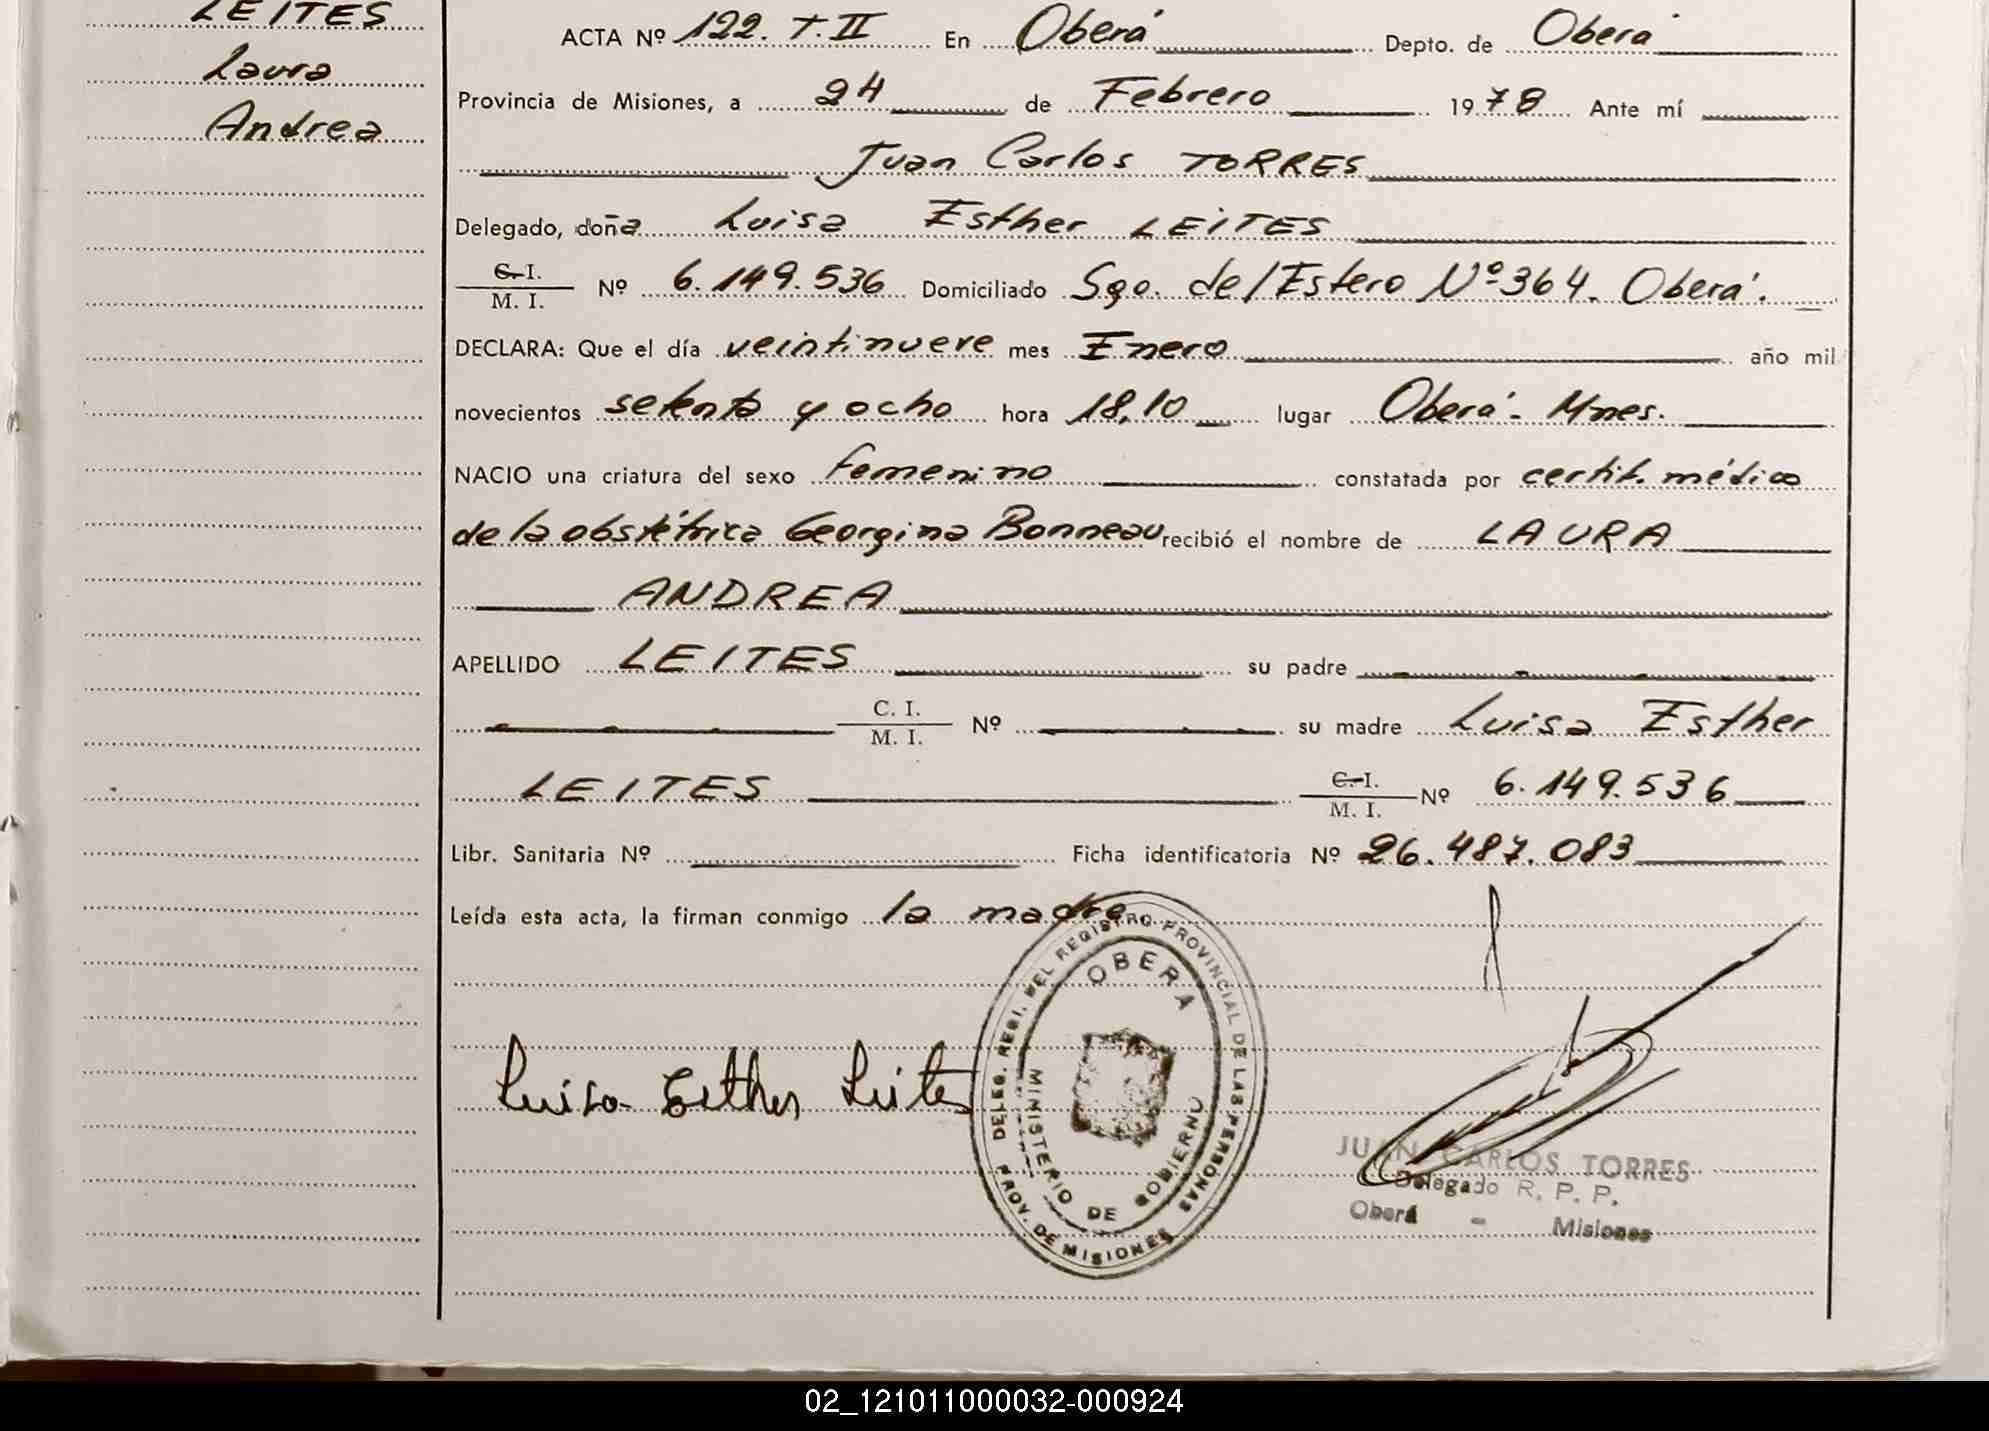 LEITES
Laura
Andrea
ACTA Nº 122. T. II En Oberá Depto. de Oberá
Provincia de Misiones, a 24 de Febrero 1978 Ante mí
Juan Carlos TORRES
Delegado, doña Luisa Esther LEITES
C. I. / M. I. Nº 6.149.536 Domiciliado Sgo. del Estero Nº 364. Oberá.
DECLARA: Que el día veintinueve mes Enero año mil
novecientos setenta y ocho hora 18,10 lugar Oberá - Mnes.
NACIO una criatura del sexo femenino constatada por certif. médico
de la obstétrica Georgina Bonneau recibió el nombre de LAURA
ANDREA
APELLIDO LEITES su padre
C. I. / M. I. Nº su madre Luisa Esther
LEITES C. I. / M. I. Nº 6.149.536
Libr. Sanitaria Nº Ficha identificatoria Nº 26.487.083
Leída esta acta, la firman conmigo la madre
Luisa Esther Leites
DELEG. REGI. DEL REGISTRO PROVINCIAL DE LAS PERSONAS
OBERA
MINISTERIO DE GOBIERNO
PROV. DE MISIONES
JUAN CARLOS TORRES
Delegado R. P. P.
Oberá - Misiones
02_121011000032-000924